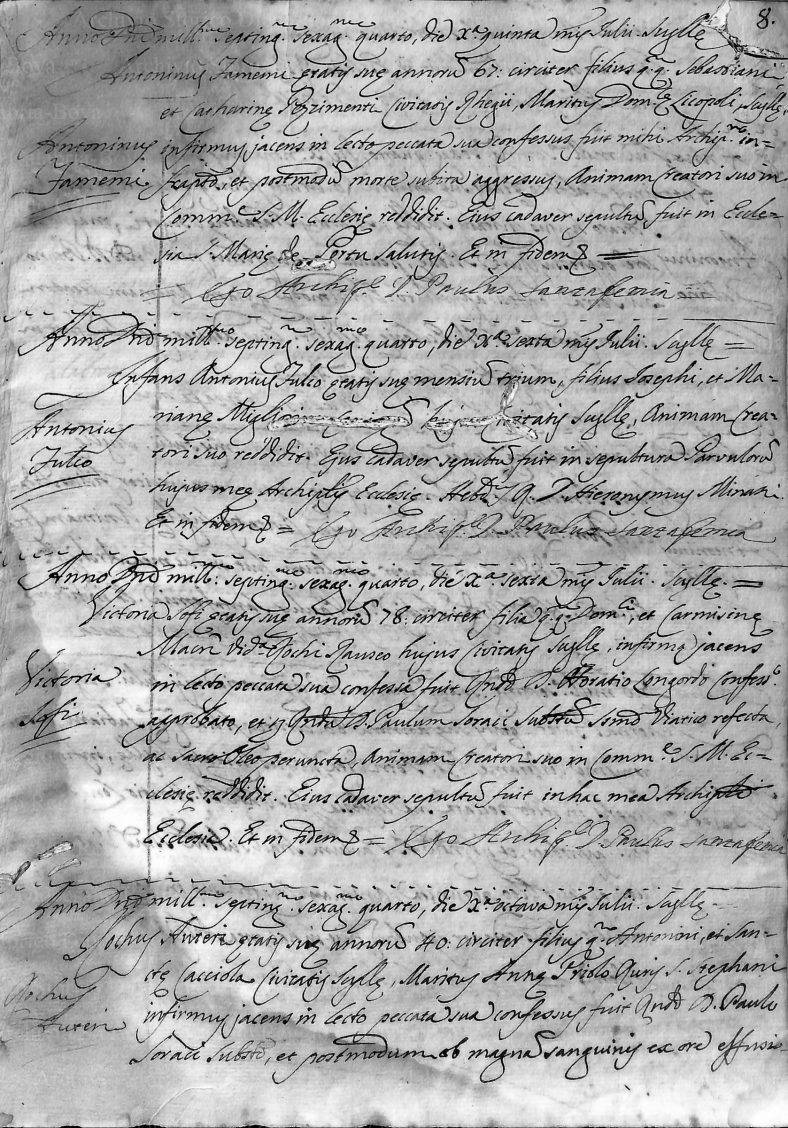 8.
Anno Dni mill.mo septing.mo sexag.mo quarto, die Xa quinta mis Julii. Scyllę
Antoninus Famemi ętatis suę annorū 67: circiter filius q.q. Sebastiani
et Catharinę Civitatis Rhegii, Maritus Dom.cę Licopoli Scyllę,
Antoninus infirmus jacens in lecto peccata sua confessus fuit mihi Archip.ro in=
Famemi. fraptō, et postmodū morte subita aggressus, Animam Creatori suo in
Comm.e S. M. Ecclesię reddidit. Eius cadaver sepultū fuit in Eccle=
sia S. Marię de Portu Salutis. Et in fidem
= Ego Archip.r D. Paulus Santafemia
Anno Dni mill.mo septing.mo sexag.mo quarto, die Xa sexta mis Julii. Scyllę =
Infans Antonius Fulco ętatis suę mensiū trium, filius Josephi, et Ma=
rianę civitatis Scyllę, Animam Crea=
Antonius tori suo reddidit. Ejus cadaver sepultū fuit in sepultura Parvulorū
Fulco hujus meę Archiplis Ecclesię. Hebd.s R. D. Hieronymus Minasi.
Et in fidem = Ego Archip.r D. Paulus Santafemia
Anno Dni mill.mo septing.mo sexag.mo quarto, die Xa sexta mis Julii. Scyllę. =
Victoria ętatis suę annorū 78. circiter filia q.q. Dom.ci, et Carmisinę
Macrì vid.a Rochi Rauseo hujus Civitatis Scyllę, infirma jacens
Victoria in lecto peccata sua confessa fuit Rndo D. Horatio Longordo Confess.e
approbato, et p Rndū D. Paulum Soraci Substū Ssmo Viatico refecta,
ac sacro Oleo peruncta, Animam Creatori suo in Comm.e S. M. Ec=
clesię reddidit. Eius cadaver sepultū fuit in hac mea Archipli
Ecclesia. Et in fidem = Ego Archip.r D. Paulus Santafemia
Anno Dni mill.mo septing.mo sexag.mo quarto, die Xa octava mis Julii. Scyllę.
Rochus Auteri ętatis suę annorū 40: circiter filius q.m Antonini, et San=
ctę Cacciola Civitatis Scyllę, Maritus Annę Priolo S. Stephani
Rochus infirmus jacens in lecto peccata sua confessus fuit Rndo D. Paulo
Auteri Soraci Substo, et postmodum ob magnā sanguinis ex ore effusio-